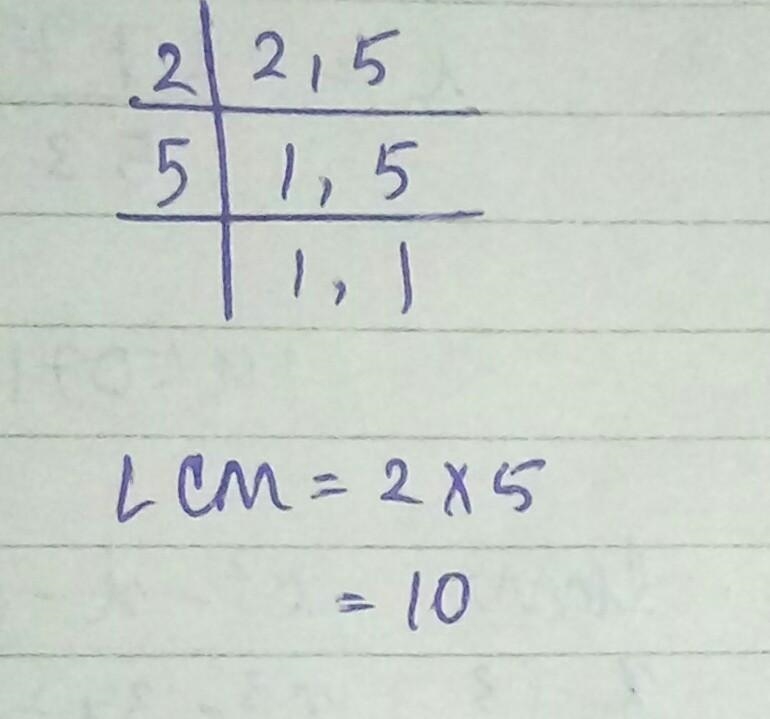 2 2, 5
5 1, 5
1, 1
LCM = 2 x 5
= 10